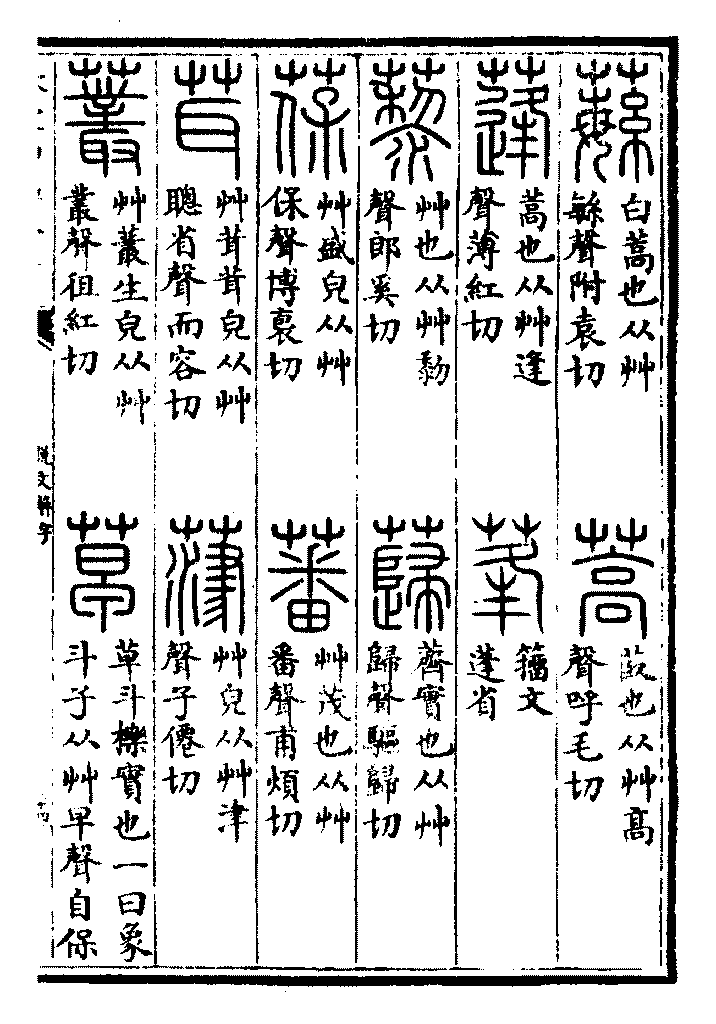 蘩
白蒿也从艸
緐聲附袁切
蒿
菣也从艸高
聲呼毛切
蓬
蒿也从艸逢
聲薄紅切
莑
籒文
蓬省
藜
艸也从艸黎
聲郎奚切
蘬
薺實也从艸
歸聲驅歸切
葆
艸盛皃从艸
保聲博裒切
蕃
艸茂也从艸
番聲甫煩切
茸
艸茸茸皃从艸
聰省聲而容切
葏
艸皃从艸津
聲子僊切
䕺
艸叢生皃从艸
叢聲徂紅切
草
草斗櫟實也一曰象
斗子从艸早聲自保
説文解字